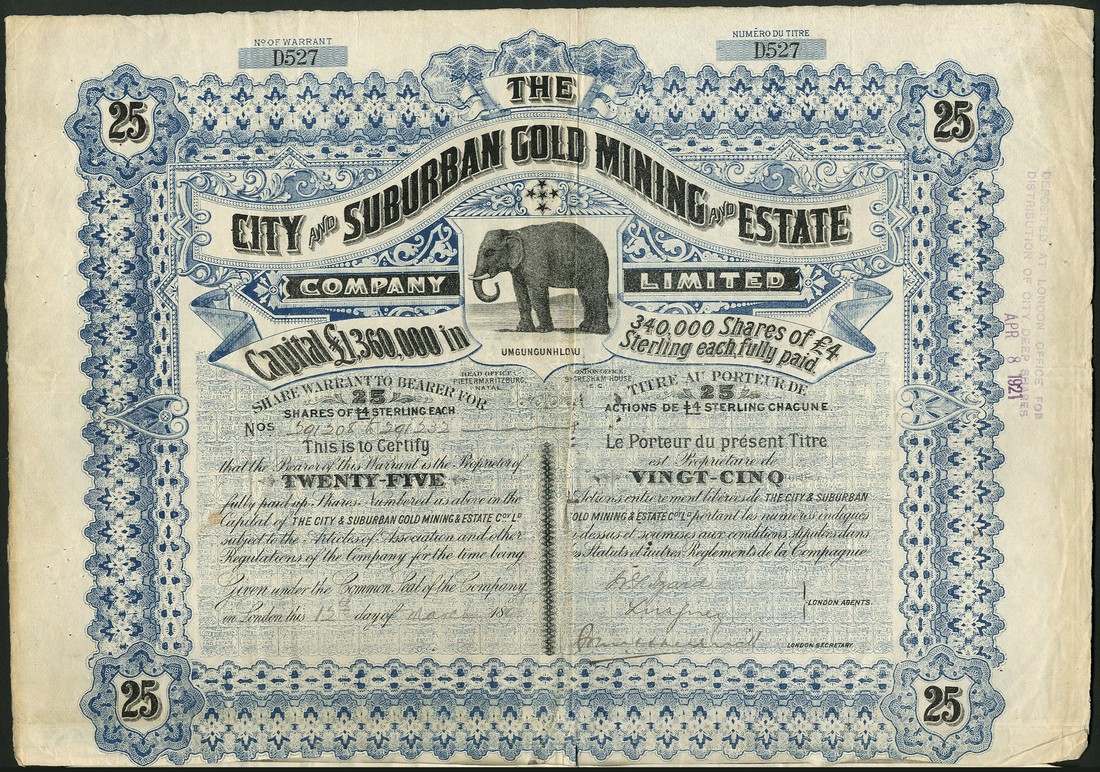 No OF WARRANT
D527
NUMÉRO DU TITRE
D527
25
25
THE
CITY AND SUBURBAN GOLD MINING AND ESTATE
COMPANY LIMITED
Capital £1,360,000 in
340,000 Shares of £4
Sterling each, fully paid.
UMGUNGUNHLOVU
HEAD OFFICE
PIETERMARITZBURG,
NATAL
LONDON OFFICE
GRESHAM HOUSE
E.C.
SHARE WARRANT TO BEARER FOR
25
SHARES OF £4 STERLING EACH
Nos 291208 to 291232
This is to Certify
that the Bearer of this Warrant is the Proprietor of
TWENTY-FIVE
fully paid up Shares Numbered as above in the
Capital of THE CITY & SUBURBAN GOLD MINING & ESTATE Coy Ld
subject to the Articles of Association and other
Regulations of the Company for the time being
Given under the Common Seal of the Company
in London this 12th day of March 18
TITRE AU PORTEUR DE
25
ACTIONS DE £4 STERLING CHACUNE
Le Porteur du présent Titre
est Propriétaire de
VINGT-CINQ
Actions entièrement libérées de THE CITY & SUBURBAN
GOLD MINING & ESTATE Coy Ld portant les numéros indiqués
ci dessus et soumises aux conditions stipulées dans
les Statuts et autres Règlements de la Compagnie
LONDON AGENTS.
LONDON SECRETARY.
25
25
DEPOSITED AT LONDON OFFICE FOR
DISTRIBUTION OF CITY DEEP SHARES
APR 8 1921